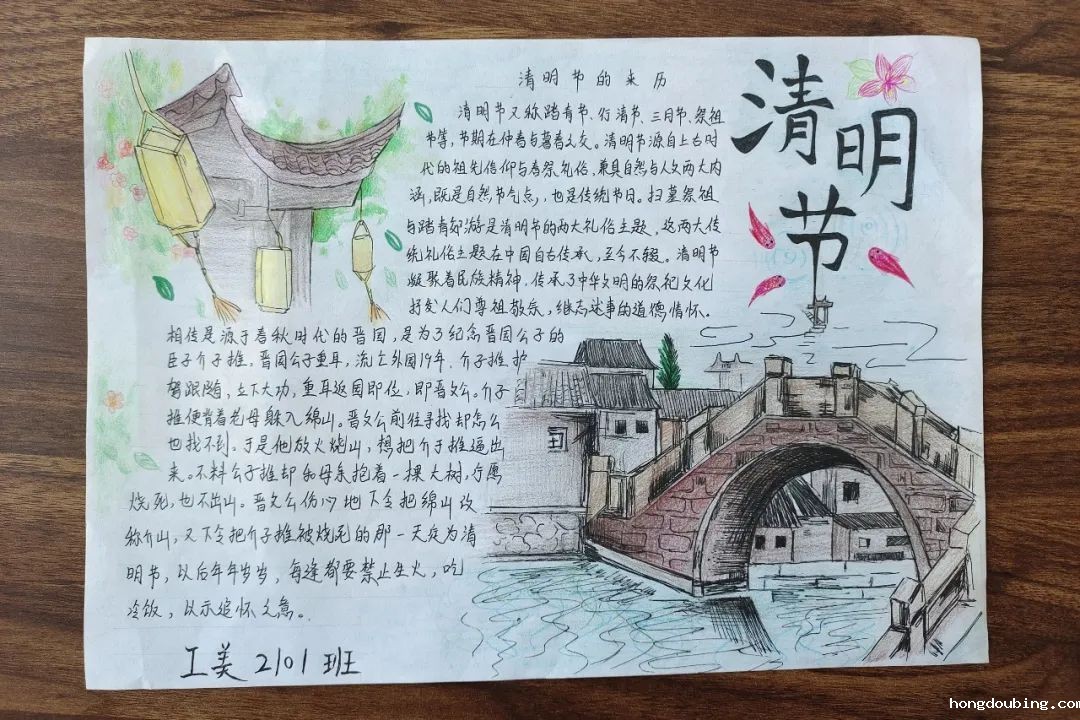 清明节的来历
清明节又称踏青节、行清节、三月节、祭祖
节等,节期在仲春与暮春之交。清明节源自上古时
代的祖先信仰与春祭礼俗,兼具自然与人文两大内
涵,既是自然节气点,也是传统节日。扫墓祭祖
与踏青郊游是清明节的两大礼俗主题,这两大传
统礼俗主题在中国自古传承,至今不辍。清明节
凝聚着民族精神,传承了中华文明的祭祀文化
抒发人们尊祖敬宗,继志述事的道德情怀。
清
明
节
相传是源于春秋时代的晋国,是为了纪念晋国公子的
臣子介子推。晋国公子重耳,流亡外国19年,介子推护
驾跟随,立下大功,重耳返国即位,即晋文公。介子
推便背着老母躲入绵山。晋文公前往寻找却怎么
也找不到,于是他放火烧山,想把介子推逼出
来。不料介子推却和母亲抱着一棵大树,宁愿
烧死,也不出山。晋文公伤心地下令把绵山改
称介山,又下令把介子推被烧死的那一天定为清
明节,以后年年岁岁,每逢都要禁止生火,吃
冷饭,以示追怀之意。
工美2101班
hongdoubing.com